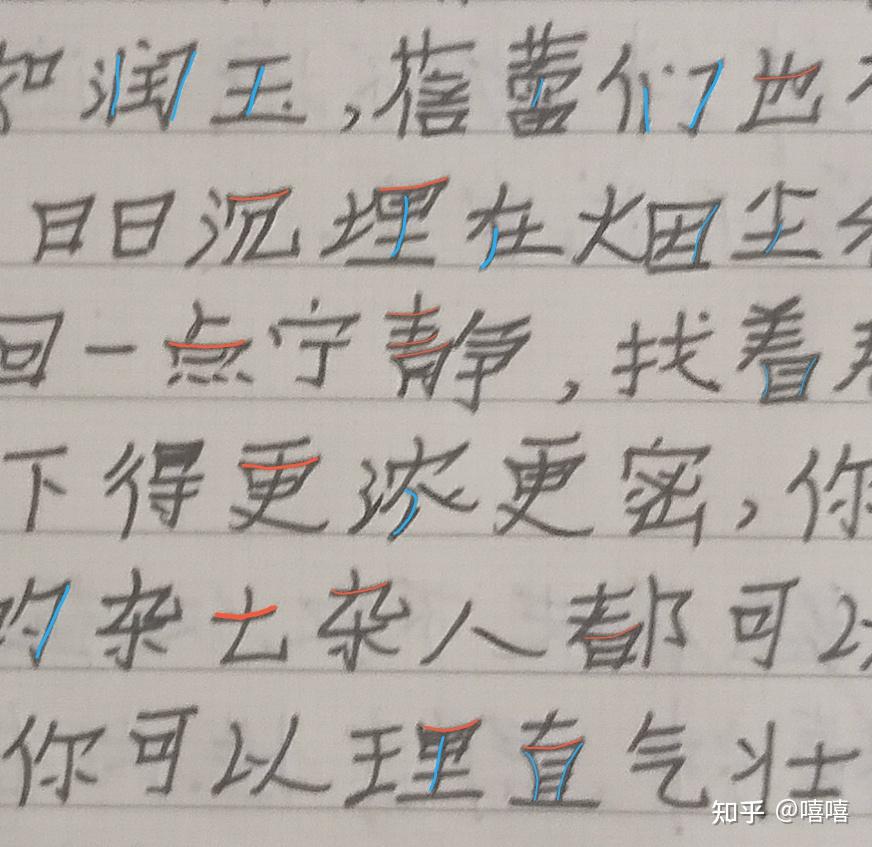 和润玉,蓓蕾们也不
日日沉埋在烟尘
回一点宁静,找着
下得更浓更密,你
的杂七杂人都可以
你可以理直气壮
知乎 @嘻嘻